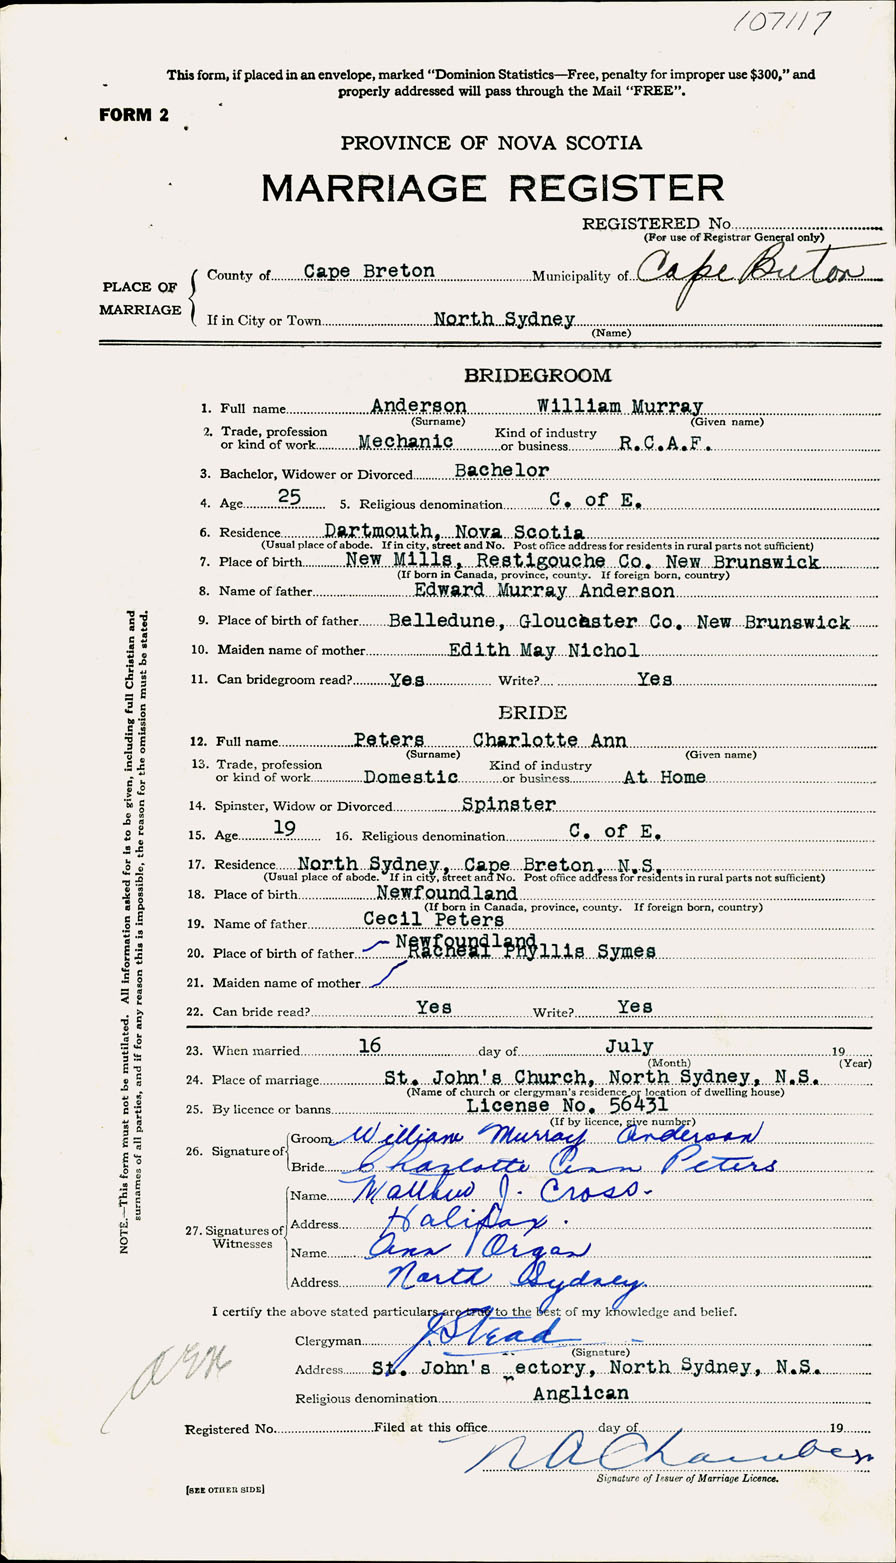 107117
This form, if placed in an envelope, marked “Dominion Statistics—Free, penalty for improper use $300,” and
properly addressed will pass through the Mail “FREE”.
FORM 2
PROVINCE OF NOVA SCOTIA
MARRIAGE REGISTER
REGISTERED No.
(For use of Registrar General only)
PLACE OF MARRIAGE
County of Cape Breton Municipality of Cape Breton
If in City or Town North Sydney
(Name)
BRIDEGROOM
1. Full name Anderson William Murray
(Surname) (Given name)
2. Trade, profession or kind of work Mechanic Kind of industry or business R.C.A.F.
3. Bachelor, Widower or Divorced Bachelor
4. Age 25 5. Religious denomination C. of E.
6. Residence Dartmouth, Nova Scotia
(Usual place of abode. If in city, street and No. Post office address for residents in rural parts not sufficient)
7. Place of birth New Mills, Restigouche Co. New Brunswick
(If born in Canada, province, county. If foreign born, country)
8. Name of father Edward Murray Anderson
9. Place of birth of father Belledune, Gloucester Co. New Brunswick
10. Maiden name of mother Edith May Nichol
11. Can bridegroom read? Yes Write? Yes
BRIDE
12. Full name Peters Charlotte Ann
(Surname) (Given name)
13. Trade, profession or kind of work Domestic Kind of industry or business At Home
14. Spinster, Widow or Divorced Spinster
15. Age 19 16. Religious denomination C. of E.
17. Residence North Sydney, Cape Breton, N.S.
(Usual place of abode. If in city, street and No. Post office address for residents in rural parts not sufficient)
18. Place of birth Newfoundland
(If born in Canada, province, county. If foreign born, country)
19. Name of father Cecil Peters
20. Place of birth of father Newfoundland
Racheal Phyllis Symes
21. Maiden name of mother
22. Can bride read? Yes Write? Yes
23. When married 16 day of July 19
(Month) (Year)
24. Place of marriage St. John's Church, North Sydney, N.S.
(Name of church or clergyman's residence or location of dwelling house)
25. By licence or banns License No. 56431
(If by licence, give number)
26. Signature of
Groom William Murray Anderson
Bride Charlotte Ann Peters
27. Signatures of Witnesses
Name Matthew J. Cross.
Address Halifax.
Name Ann Organ
Address North Sydney.
I certify the above stated particulars are true to the best of my knowledge and belief.
Clergyman J Stead
(Signature)
Address St. John's rectory, North Sydney, N.S.
Religious denomination Anglican
Registered No. Filed at this office day of 19
N A Chambers
Signature of Issuer of Marriage Licence.
[SEE OTHER SIDE]
NOTE.—This form must not be mutilated. All information asked for is to be given, including full Christian and
surnames of all parties, and if for any reason this is impossible, the reason for the omission must be stated.